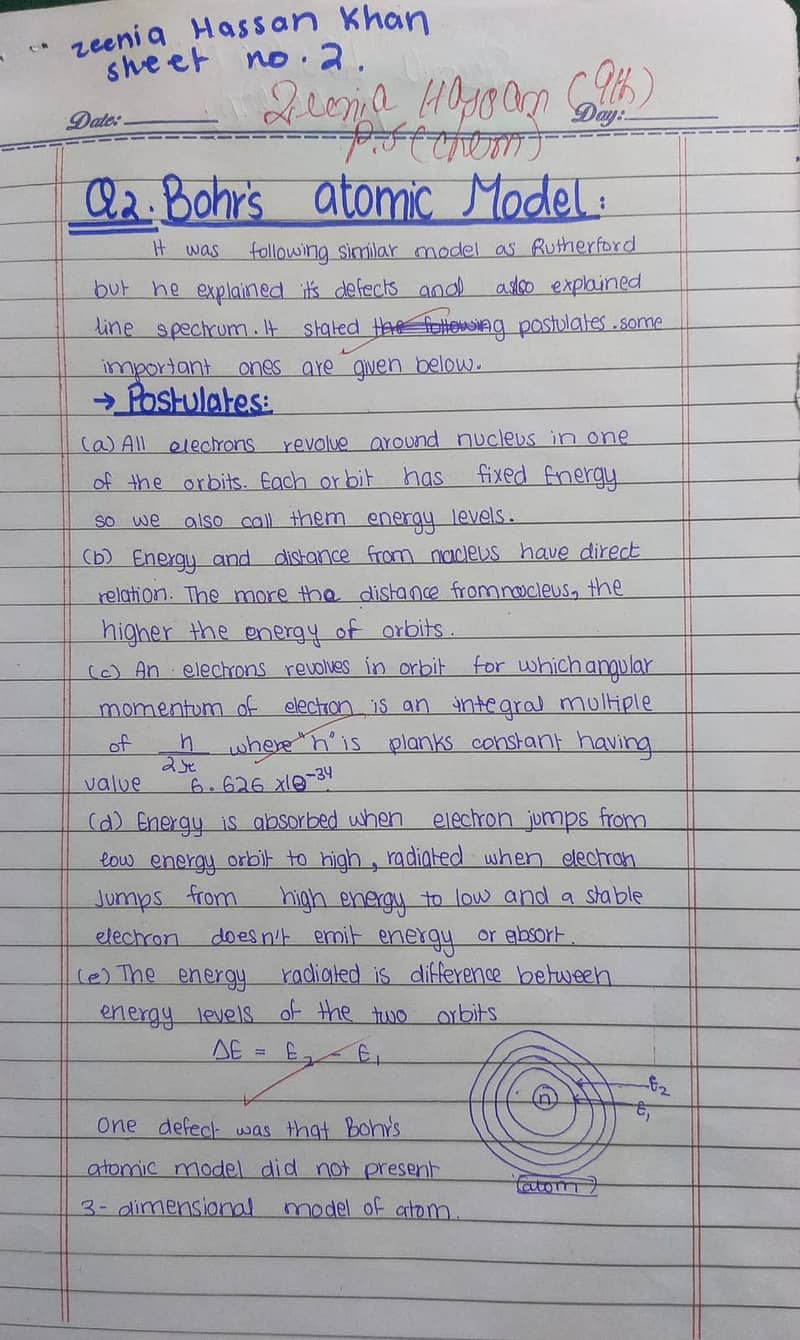 zeenia Hassan Khan
sheet no. 2.
Zeenia Hassan (9th)
Date:
Day:
P.S (chem)
Q2. Bohr's atomic Model:
It was following similar model as Rutherford
but he explained its defects and also explained
line spectrum. It stated the following postulates. some
important ones are given below.
→ Postulates:
(a) All electrons revolve around nucleus in one
of the orbits. Each orbit has fixed Energy
so we also call them energy levels.
(b) Energy and distance from nucleus have direct
relation. The more the distance from nucleus, the
higher the energy of orbits.
(c) An electrons revolves in orbit for which angular
momentum of electron is an integral multiple
of h/2π where "h" is planks constant having
value 6.626 x10-34
(d) Energy is absorbed when electron jumps from
low energy orbit to high, radiated when electron
Jumps from high energy to low and a stable
electron doesn't emit energy or absorb.
(e) The energy radiated is difference between
energy levels of the two orbits
ΔE = E2 - E1
E2
n
E1
One defect was that Bohr's
atomic model did not present
(atom)
3- dimensional model of atom.